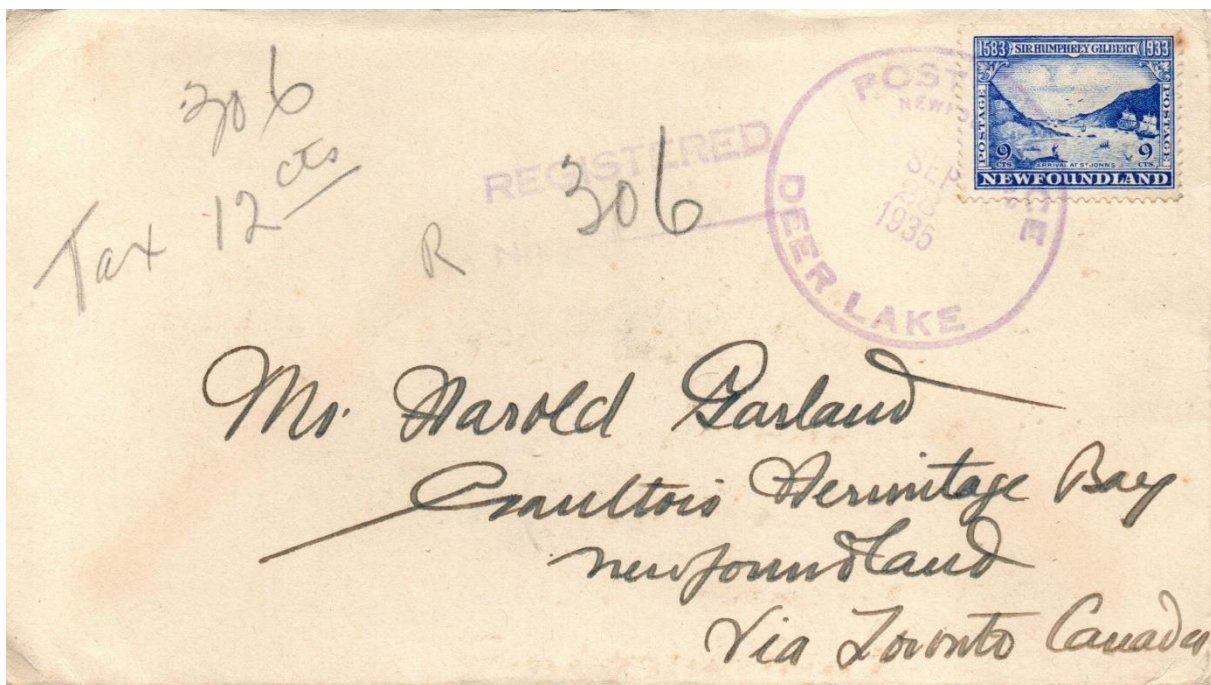 306
Tax 12 cts
REGISTERED
R 306
POST
NEWF
SEP
1935
DEER LAKE
1583 SIR HUMPHREY GILBERT 1933
POSTAGE
POSTAGE
9 CTS.
9 CTS.
ARRIVAL AT ST JOHNS
NEWFOUNDLAND
Mr. Harold Garland
Gaultois Hermitage Bay
Newfoundland
Via Toronto Canada